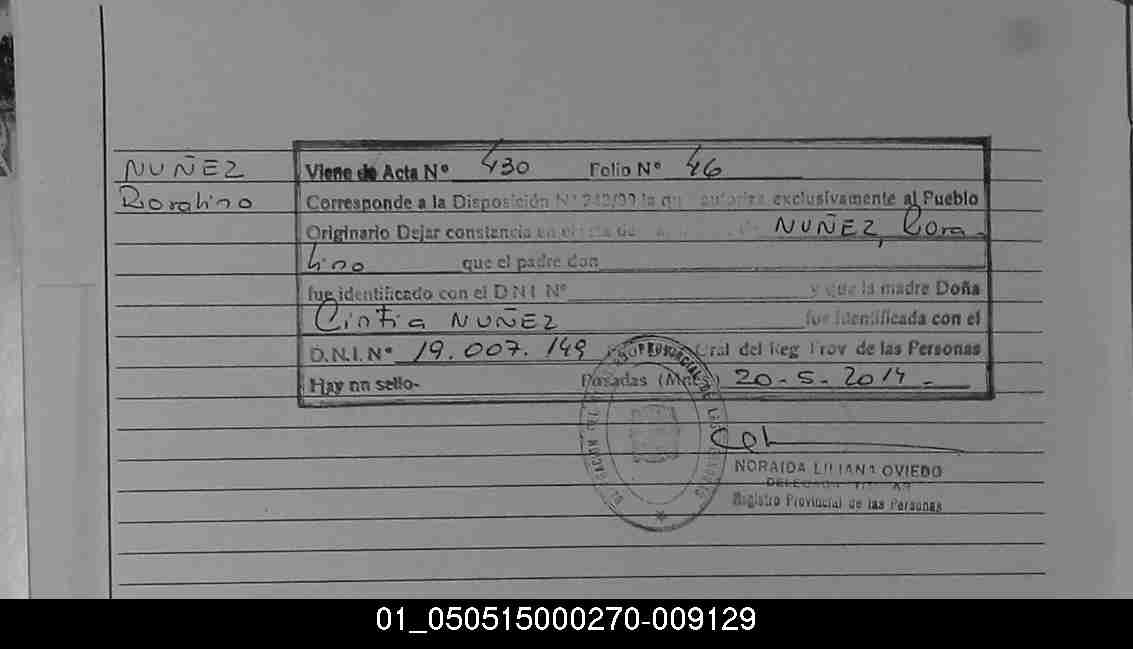 NUÑEZ
Rosalino
Viene de Acta Nº 430 Folio Nº 46
Corresponde a la Disposición Nº 242/99 la que autoriza exclusivamente al Pueblo
Originario Dejar constancia en el NUÑEZ, Rosa-
lino que el padre don
fue identificado con el D.N.I. Nº y que la madre Doña
Cintia NUÑEZ fue identificada con el
D.N.I. Nº 19.007.149 Gral del Reg Prov de las Personas
Hay un sello- Posadas (Mnes) 20-5-2014-
NORAIDA LILIANA OVIEDO
DELEGADA TITULAR
Registro Provincial de las Personas
01_050515000270-009129